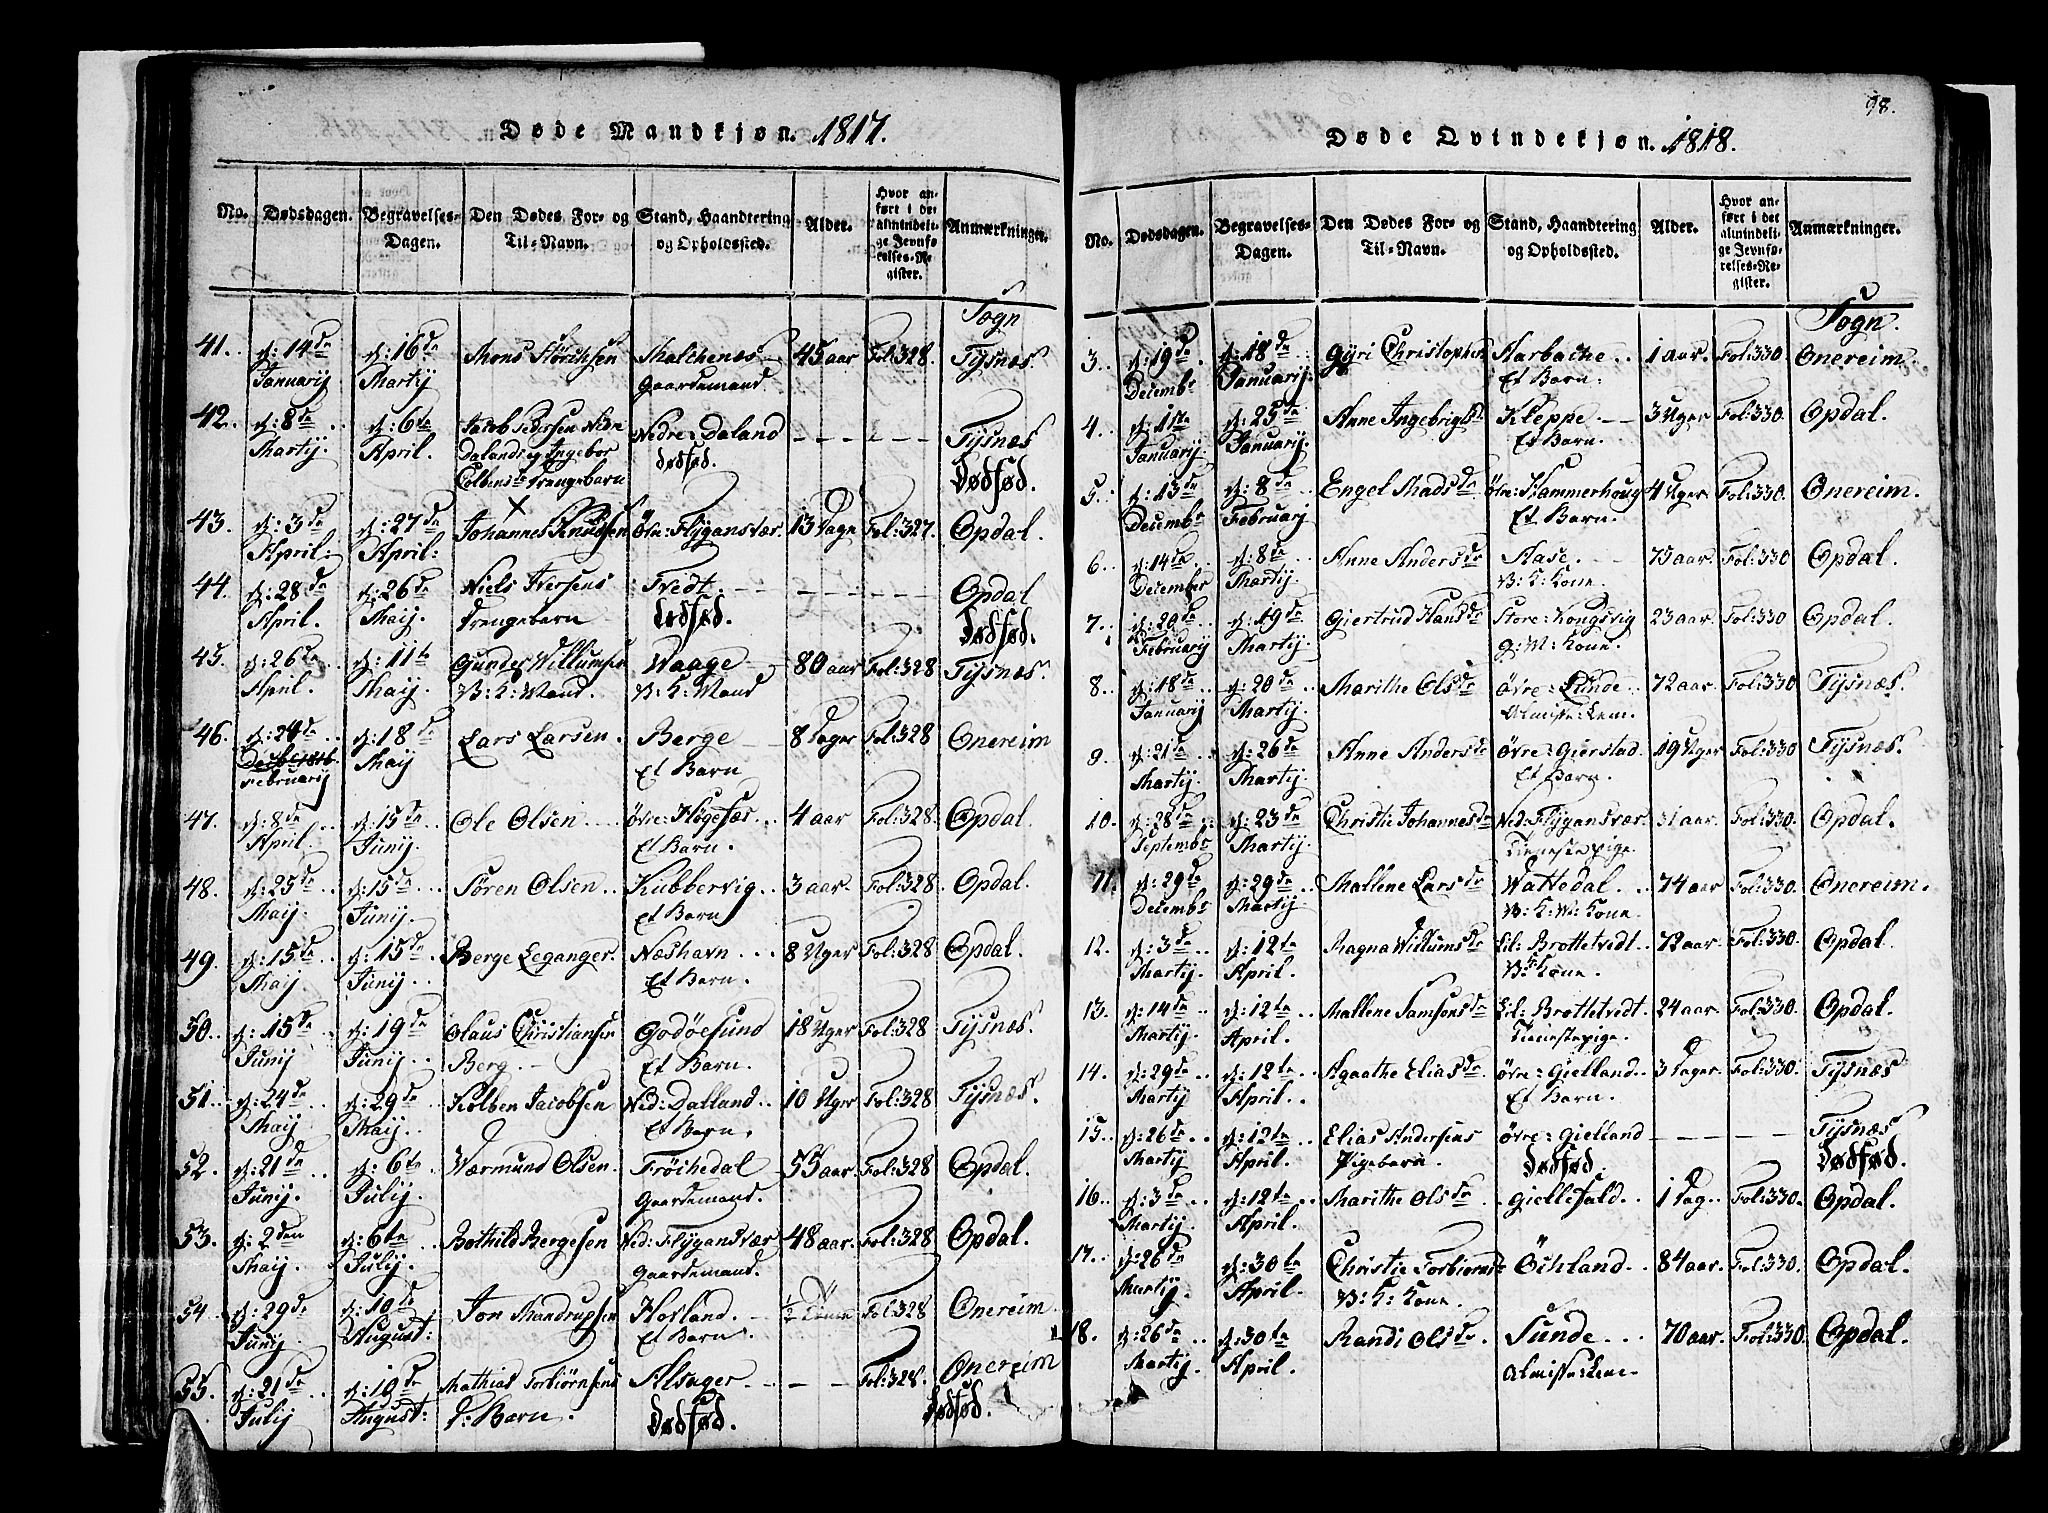 98.
Døde Mandkjøn. 1817.
No. Dødsdagen. Begravelses-Dagen. Den Dødes For- og Til-Navn. Stand, Haandtering og Opholdssted. Alder. Hvor anført i det almindelige Jevnførelses-Register. Anmærkninger.
Sogn
41. d: 14de d: 16de Mons Størchsen Malchenæs 45 aar Fol: 328. Tysnæs.
Januarij Martij Gaardemand
42. d: 8de d: 6te Jacob Pedersen Nedre Nedre: Daland Tysnæs
Martij. April. Dalands og Ingebor dødfød. Dødfød.
Colbens Drengebarn
43. d: 3de d: 27de Johannes Knudsen Övre: Flygansvær 13 Dage Fol: 327. Opdal.
April: April:
44. d: 28de d: 26de Niels Iversens Tvedt. Opdal
April. Maij. Drengebarn dødfød. Dødfød.
45. d: 26de d: 11te Gunder Willumsen Waage 80 aar Fol: 328 Tysnæs.
April. Maij. B: K: Mand. B: K: Mand
46. d: 24de d: 18de Lars Larsen. Berge 8 Dager Fol: 328 Onereim
Februarij Maij Et Barn
47. d: 8de d: 15de Ole Olsen Övre: Høgefær 4 aar Fol: 328. Opdal.
April. Junij. Et Barn.
48. d: 25de d: 15de Sören Olsen Kubbervig 3 aar. Fol: 328 Opdal.
Maij. Junij. Et Barn
49. d: 15de d: 15de Berge Leganger. Næshavn 8 Uger Fol: 328 Opdal.
Maij Junij. Et Barn.
50. d: 15de d: 19de Olaus Christiansen Godöesund 18 Uger Fol: 328 Tysnæs.
Junij Junij. Berg. Et Barn.
51. d: 24de d: 29de Kolben Jacobsen Ned: Dalland 10 Uger Fol: 328 Tysnæs.
Maij Maij. Et Barn.
52. d: 21de d: 6te Værmund Olsen. Tröchedal 55 aar. Fol: 328 Opdal.
Junij. Julij. Gaardemand.
53. d: 2den d: 6te Bothild Bergesen Ned: Flygandsvær 48 aar. Fol: 328 Opdal.
Maij. Julij. Gaardemand.
54. d: 29de d: 10de Jon Mandrupsen Hovland. Fol: 328 Onereim.
Junij August: Et Barn.
55. d: 21de d: 10de Mathias Torbiörnsens Alsager Fol: 328. Onereim
Julij August: D: Barn. Dødfød. Dødfød.
Døde Qvindekjøn. 1818.
No. Dødsdagen. Begravelses-Dagen. Den Dødes For- og Til-Navn. Stand, Haandtering og Opholdssted. Alder. Hvor anført i det almindelige Jevnførelses-Register. Anmærkninger.
Sogn.
3. d: 19de d: 18de Gyri Christophers Aarbache 1 aar. Fol: 330. Onereim.
Decembr Januarij. Et Barn.
4. d: 1ste d: 25de Anne Ingebrigtsd. Kleppe 3 Uger Fol: 330. Opdal.
Januarij. Januarij. Et Barn.
5. d: 13de d: 8de Engel Madsdr Övre: Hammerhoug 4 Uger. Fol: 330. Onereim.
Decembr Februarij Et Barn.
6. d: 14de d: 8de Anne Andersdr Aase. 75 aar. Fol: 330 Opdal.
December Martij. B: K: Kone.
7. d: 20de d: 19de Giertrud Hansdr Store: Kongsvig 23 aar. Fol: 330 Opdal.
Februarij Martij. G: M: Kone.
8. d: 18de d: 20de Marithe Olsdr Övre: Lunde 72 aar. Fol: 330. Tysnæs.
Januarij Martij. Almisse: Lem.
9. d: 21te d: 26de Anne Andersdr Övre: Gierstad 19 Uger Fol: 330. Tysnæs.
Martij Martij. Et Barn.
10. d: 28de d: 23de Christie Johannesdr Ned: Flygansvær 31 aar. Fol: 330. Opdal.
Septembr Martij. Tienestepige.
11. d: 29de d: 29de Mallene Larsdr Wattedal 74 aar Fol: 330. Onereim.
Decembr Martij. B: K: W: Kone.
12. d: 3de d: 12te Ragna Willumsdr Lil: Brottetvedt 72 aar. Fol: 330. Opdal.
Martij. April. B: K: Kone.
13. d: 14de d: 12te Mallene Samsonsdr Lil: Brottetvedt 24 aar. Fol: 330. Opdal.
Martij. April. Tienestepige.
14. d: 29de d: 12te Agaathe Eliasdr Övre: Gielland 3 Dager. Fol: 330. Tysnæs
Martij April. Et Barn.
15. d: 26de d: 12te Elias Andersens Övre: Gielland Tysnæs
Martij April. Pigebarn. dødfød. Dødfød.
16. d: 3de d: 12te Marithe Olsdr Giellefald 1 Dag. Fol: 330. Opdal.
Martij April.
17. d: 26de d: 30te Christie Torbiörnsdr Öchland 84 aar. Fol: 330. Opdal.
Martij. April. B: K: Kone.
18. d: 26de d: 30te Randi Olsdr Sunde 70 aar. Fol: 330. Opdal.
Martij. April. Almisse: Lem.